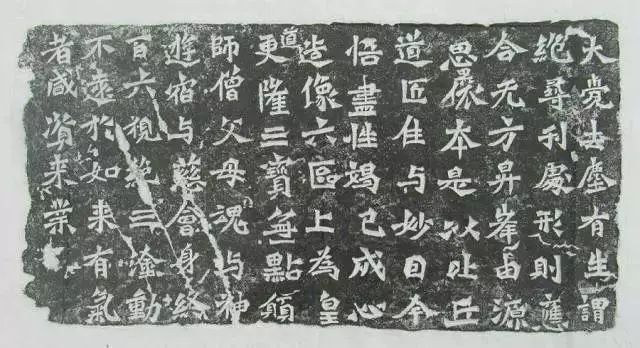 大覺去塵有生謂
絕尋刊處形則應
合无方昇峯由源
思懷本是以比丘
道匠住与抄日今
悟盡性竭己成心
造像六區上為皇
道更隆三寶無點願
師僧父母魂与神
遊宿与慈會身終
百六視絶三塗動
不遠於如来有氣
者咸資来業